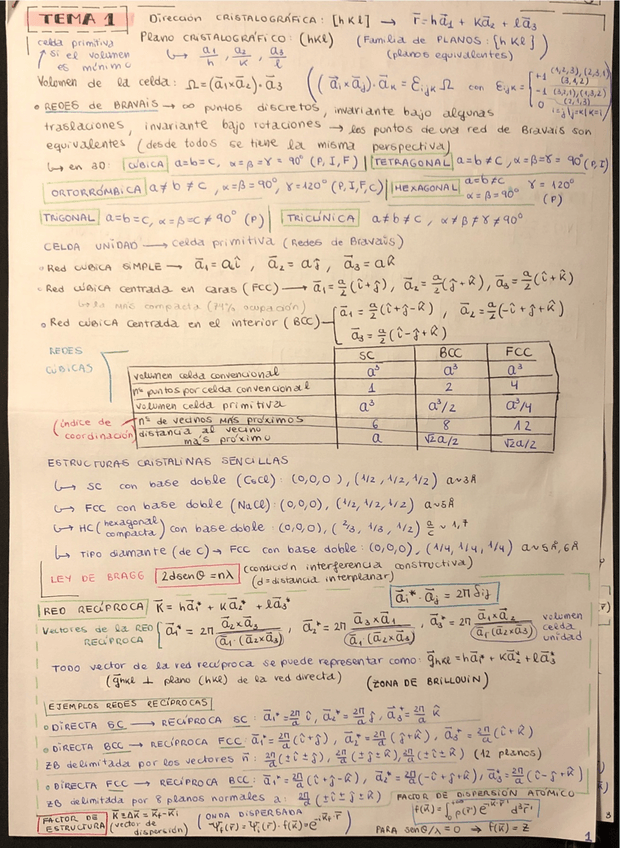 TEMA 1
Dirección CRISTALOGRÁFICA: [hkl] → r⃗ = ha⃗₁ + ka⃗₂ + la⃗₃
celda primitiva si el volumen es mínimo
Plano CRISTALOGRÁFICO: (hkl) (Familia de PLANOS: [hkl])
↳ a⃗₁/h, a⃗₂/k, a⃗₃/l (planos equivalentes)
Volumen de la celda: Ω = (a⃗₁×a⃗₂)·a⃗₃ ((a⃗ᵢ×a⃗ⱼ)·a⃗ₖ = Eᵢⱼₖ Ω con Eᵢⱼₖ = { +1 (1,2,3), (2,3,1) (3,1,2)
-1 (3,2,1), (1,3,2) (2,1,3)
0 i=j, j=k, k=i
• REDES de BRAVAIS → ∞ puntos discretos, invariante bajo algunas
traslaciones, invariante bajo rotaciones → los puntos de una red de Bravais son
equivalentes (desde todos se tiene la misma perspectiva)
↳ en 3D: CÚBICA a=b=c, α=β=γ=90° (P, I, F) | TETRAGONAL a=b≠c, α=β=γ=90° (P, I)
ORTORRÓMBICA a≠b≠c, α=β=90°, γ=120° (P, I, F, C) | HEXAGONAL a=b≠c α=β=90° γ=120° (P)
TRIGONAL a=b=c, α=β=c≠90° (P) | TRICLÍNICA a≠b≠c, α≠β≠γ≠90°
CELDA UNIDAD → celda primitiva (Redes de Bravais)
• Red CÚBICA SIMPLE → a⃗₁ = aî, a⃗₂ = aĵ, a⃗₃ = ak̂
• Red CÚBICA centrada en caras (FCC) → a⃗₁ = a/2(î+ĵ), a⃗₂ = a/2(ĵ+k̂), a⃗₃ = a/2(î+k̂)
↳ la más compacta (74% ocupación)
• Red CÚBICA Centrada en el interior (BCC) → { a⃗₁ = a/2(î+ĵ-k̂), a⃗₂ = a/2(-î+ĵ+k̂)
a⃗₃ = a/2(î-ĵ+k̂)
REDES CÚBICAS
SC BCC FCC
volumen celda convencional a³ a³ a³
nº puntos por celda convencional 1 2 4
volumen celda primitiva a³ a³/2 a³/4
(índice de coordinación) nº de vecinos MÁS PRÓXIMOS 6 8 12
distancia al vecino más próximo a √2a/2 √2a/2
ESTRUCTURAS CRISTALINAS SENCILLAS
↳ SC con base doble (CsCl): (0,0,0), (1/2, 1/2, 1/2) a~3Å
↳ FCC con base doble (NaCl): (0,0,0), (1/2, 1/2, 1/2) a~5Å
↳ HC (hexagonal compacta) con base doble: (0,0,0), (2/3, 1/3, 1/2) a/c ~ 1,7
↳ Tipo diamante (de C) → FCC con base doble: (0,0,0), (1/4, 1/4, 1/4) a~5Å, 6Å
LEY DE BRAGG 2dsenθ = nλ (condición interferencia constructiva)
(d = distancia interplanar)
RED RECÍPROCA K⃗ = ha⃗₁* + ka⃗₂* + la⃗₃* a⃗ᵢ*·a⃗ⱼ = 2π δᵢⱼ
Vectores de la RED RECÍPROCA { a⃗₁* = 2π a⃗₂×a⃗₃/(a⃗₁·(a⃗₂×a⃗₃)), a⃗₂* = 2π a⃗₃×a⃗₁/(a⃗₁·(a⃗₂×a⃗₃)), a⃗₃* = 2π a⃗₁×a⃗₂/(a⃗₁·(a⃗₂×a⃗₃)) volumen celda unidad
TODO vector de la red recíproca se puede representar como: g⃗hkl = ha⃗₁* + ka⃗₂* + la⃗₃*
(g⃗hkl ⊥ plano (hkl) de la red directa) (ZONA DE BRILLOUIN)
EJEMPLOS REDES RECÍPROCAS
• DIRECTA SC → RECÍPROCA SC: a⃗₁* = 2π/a î, a⃗₂* = 2π/a ĵ, a⃗₃* = 2π/a k̂
• DIRECTA BCC → RECÍPROCA FCC: a⃗₁* = 2π/a(î+ĵ), a⃗₂* = 2π/a(ĵ+k̂), a⃗₃* = 2π/a(î+k̂)
ZB delimitada por los vectores n⃗: 2π/a(±î±ĵ), 2π/a(±ĵ±k̂), 2π/a(±î±k̂) (12 planos)
• DIRECTA FCC → RECÍPROCA BCC: a⃗₁* = 2π/a(î+ĵ-k̂), a⃗₂* = 2π/a(-î+ĵ+k̂), a⃗₃* = 2π/a(î-ĵ+k̂)
ZB delimitada por 8 planos normales a: 2π/a(±î±ĵ±k̂)
FACTOR DE DISPERSIÓN ATÓMICO
FACTOR DE ESTRUCTURA K⃗ ≡ Δk⃗ = k⃗f - k⃗i (vector de dispersión)
(ONDA DISPERSADA
PARA senθ/λ = 0 → f(k⃗) = Z
1